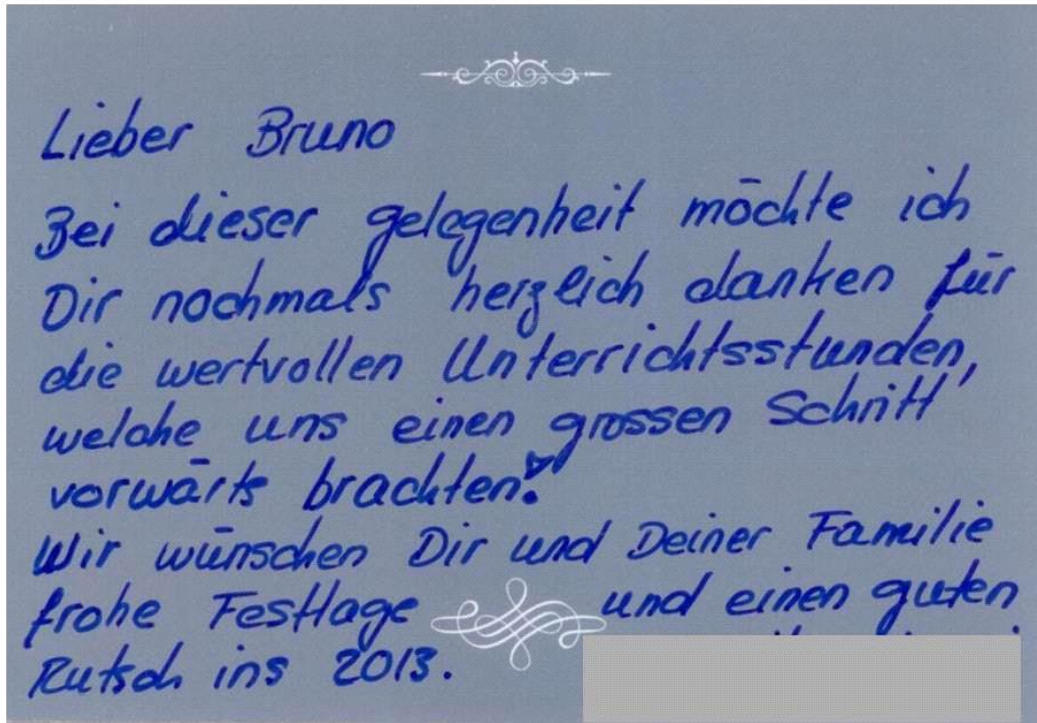 Lieber Bruno
Bei dieser gelegenheit möchte ich
Dir nochmals herzlich danken für
die wertvollen Unterrichtsstunden,
welche uns einen grossen Schritt
vorwärts brachten!
Wir wünschen Dir und Deiner Familie
frohe Festtage und einen guten
Rutsch ins 2013.